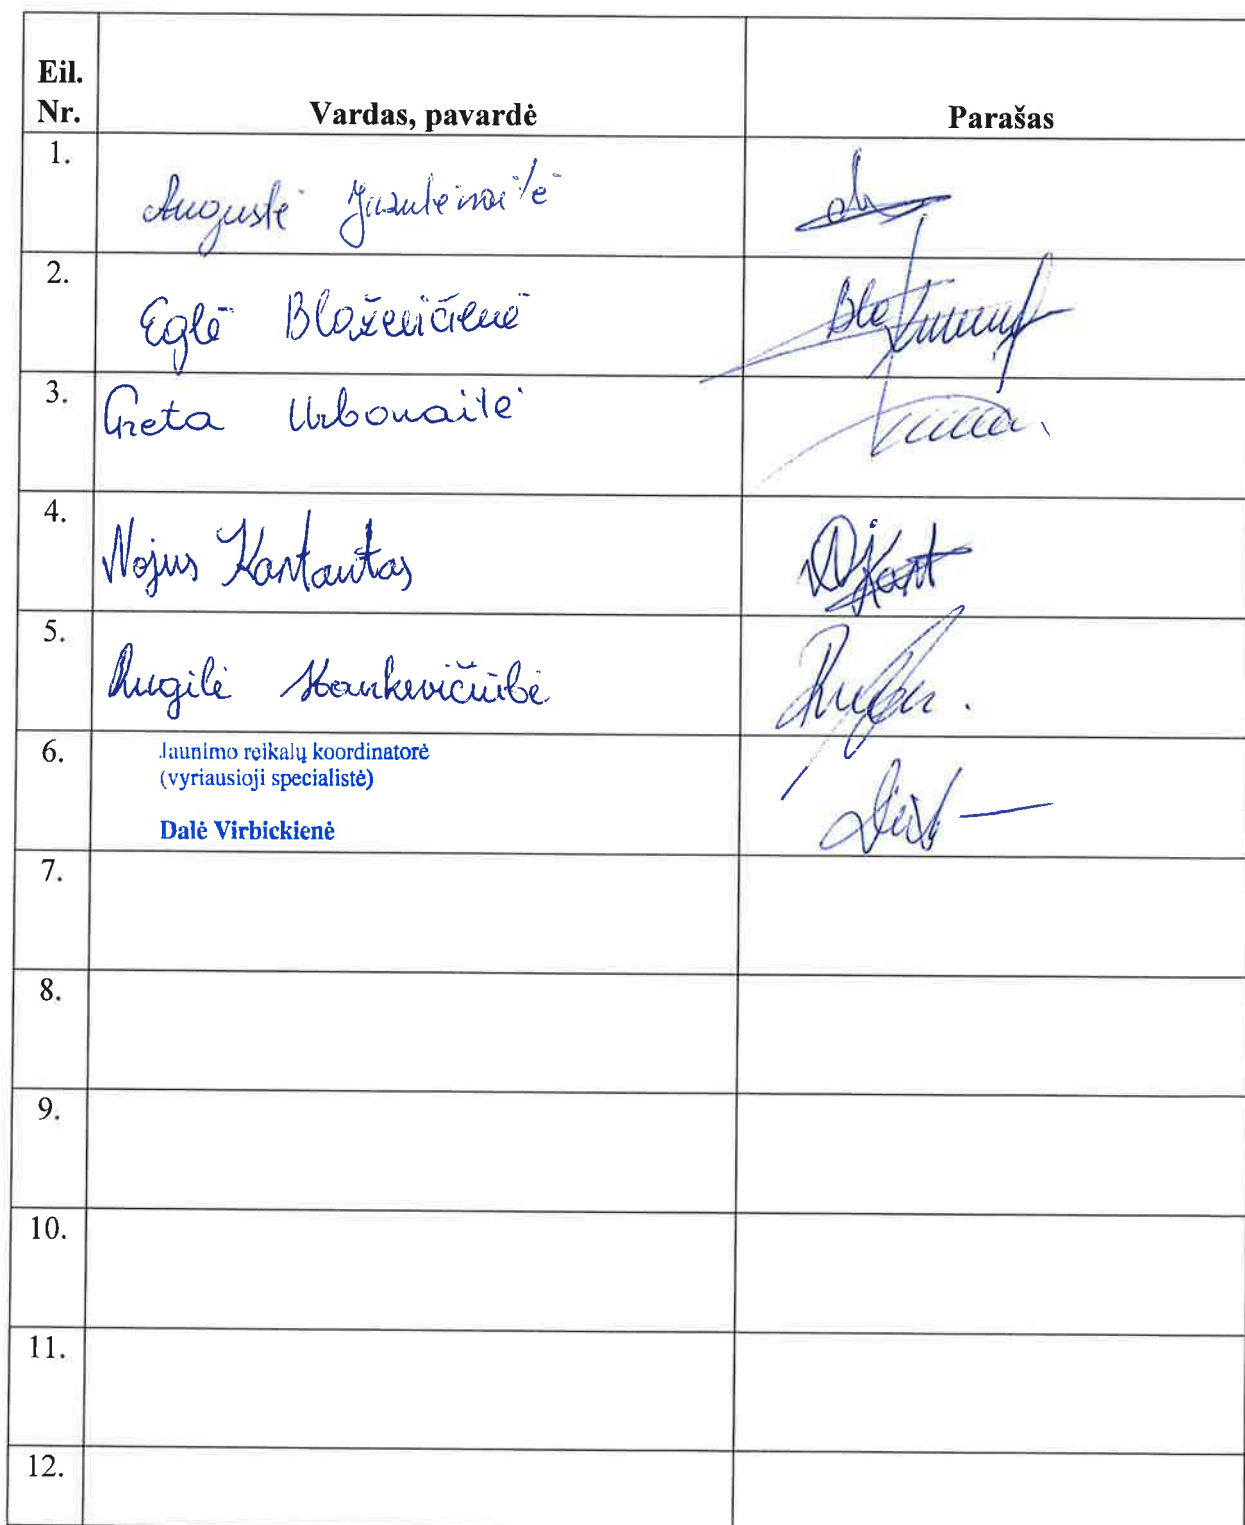 Eil.
Nr. Vardas, pavardė Parašas
1. Augustė
2. Eglė Blaževičienė
3. Greta Urbonaitė
4. Nojus Kantautas
5. Rugilė Stankevičiūtė
6. Jaunimo reikalų koordinatorė
(vyriausioji specialistė)
Dalė Virbickienė
7.
8.
9.
10.
11.
12.